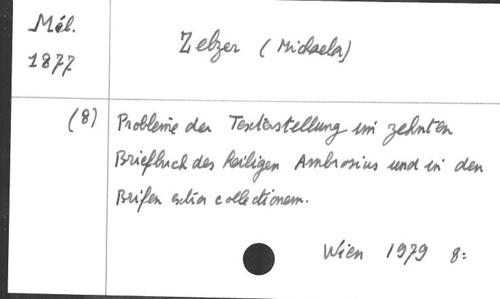 Mél.
1877
Zelzer (Michaela)
(8)
Probleme der Texterstellung im zehnten
Briefbuch des heiligen Ambrosius und in den
Brifen extra collectionem.
Wien 1979 8: